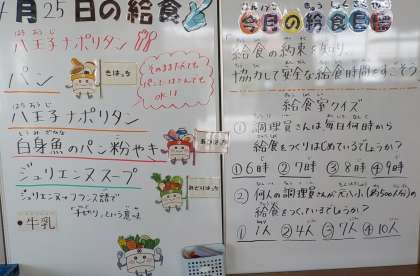 4月25日の給食
八王子ナポリタン
はちおうじ
パン
きはっち
そのままたべても
パンにはさんでも
OK!!
はちおうじ
八王子ナポリタン
しろみざかな
白身魚のパン粉やき
あかはっち
ジュリエンヌスープ
ジュリエンヌ→フランス語で
「千切り」という意味
みどりはっち
・牛乳
今月の給食目標
給食の約束を守り、
協力して安全な給食時間をすごそう
給食室クイズ
① 調理員さんは毎日何時から
給食をつくりはじめているでしょうか?
①6時 ②7時 ③8時 ④9時
② 何人の調理員さんが元八小(約500人分)の
給食をつくっているでしょうか?
①1人 ②4人 ③7人 ④10人